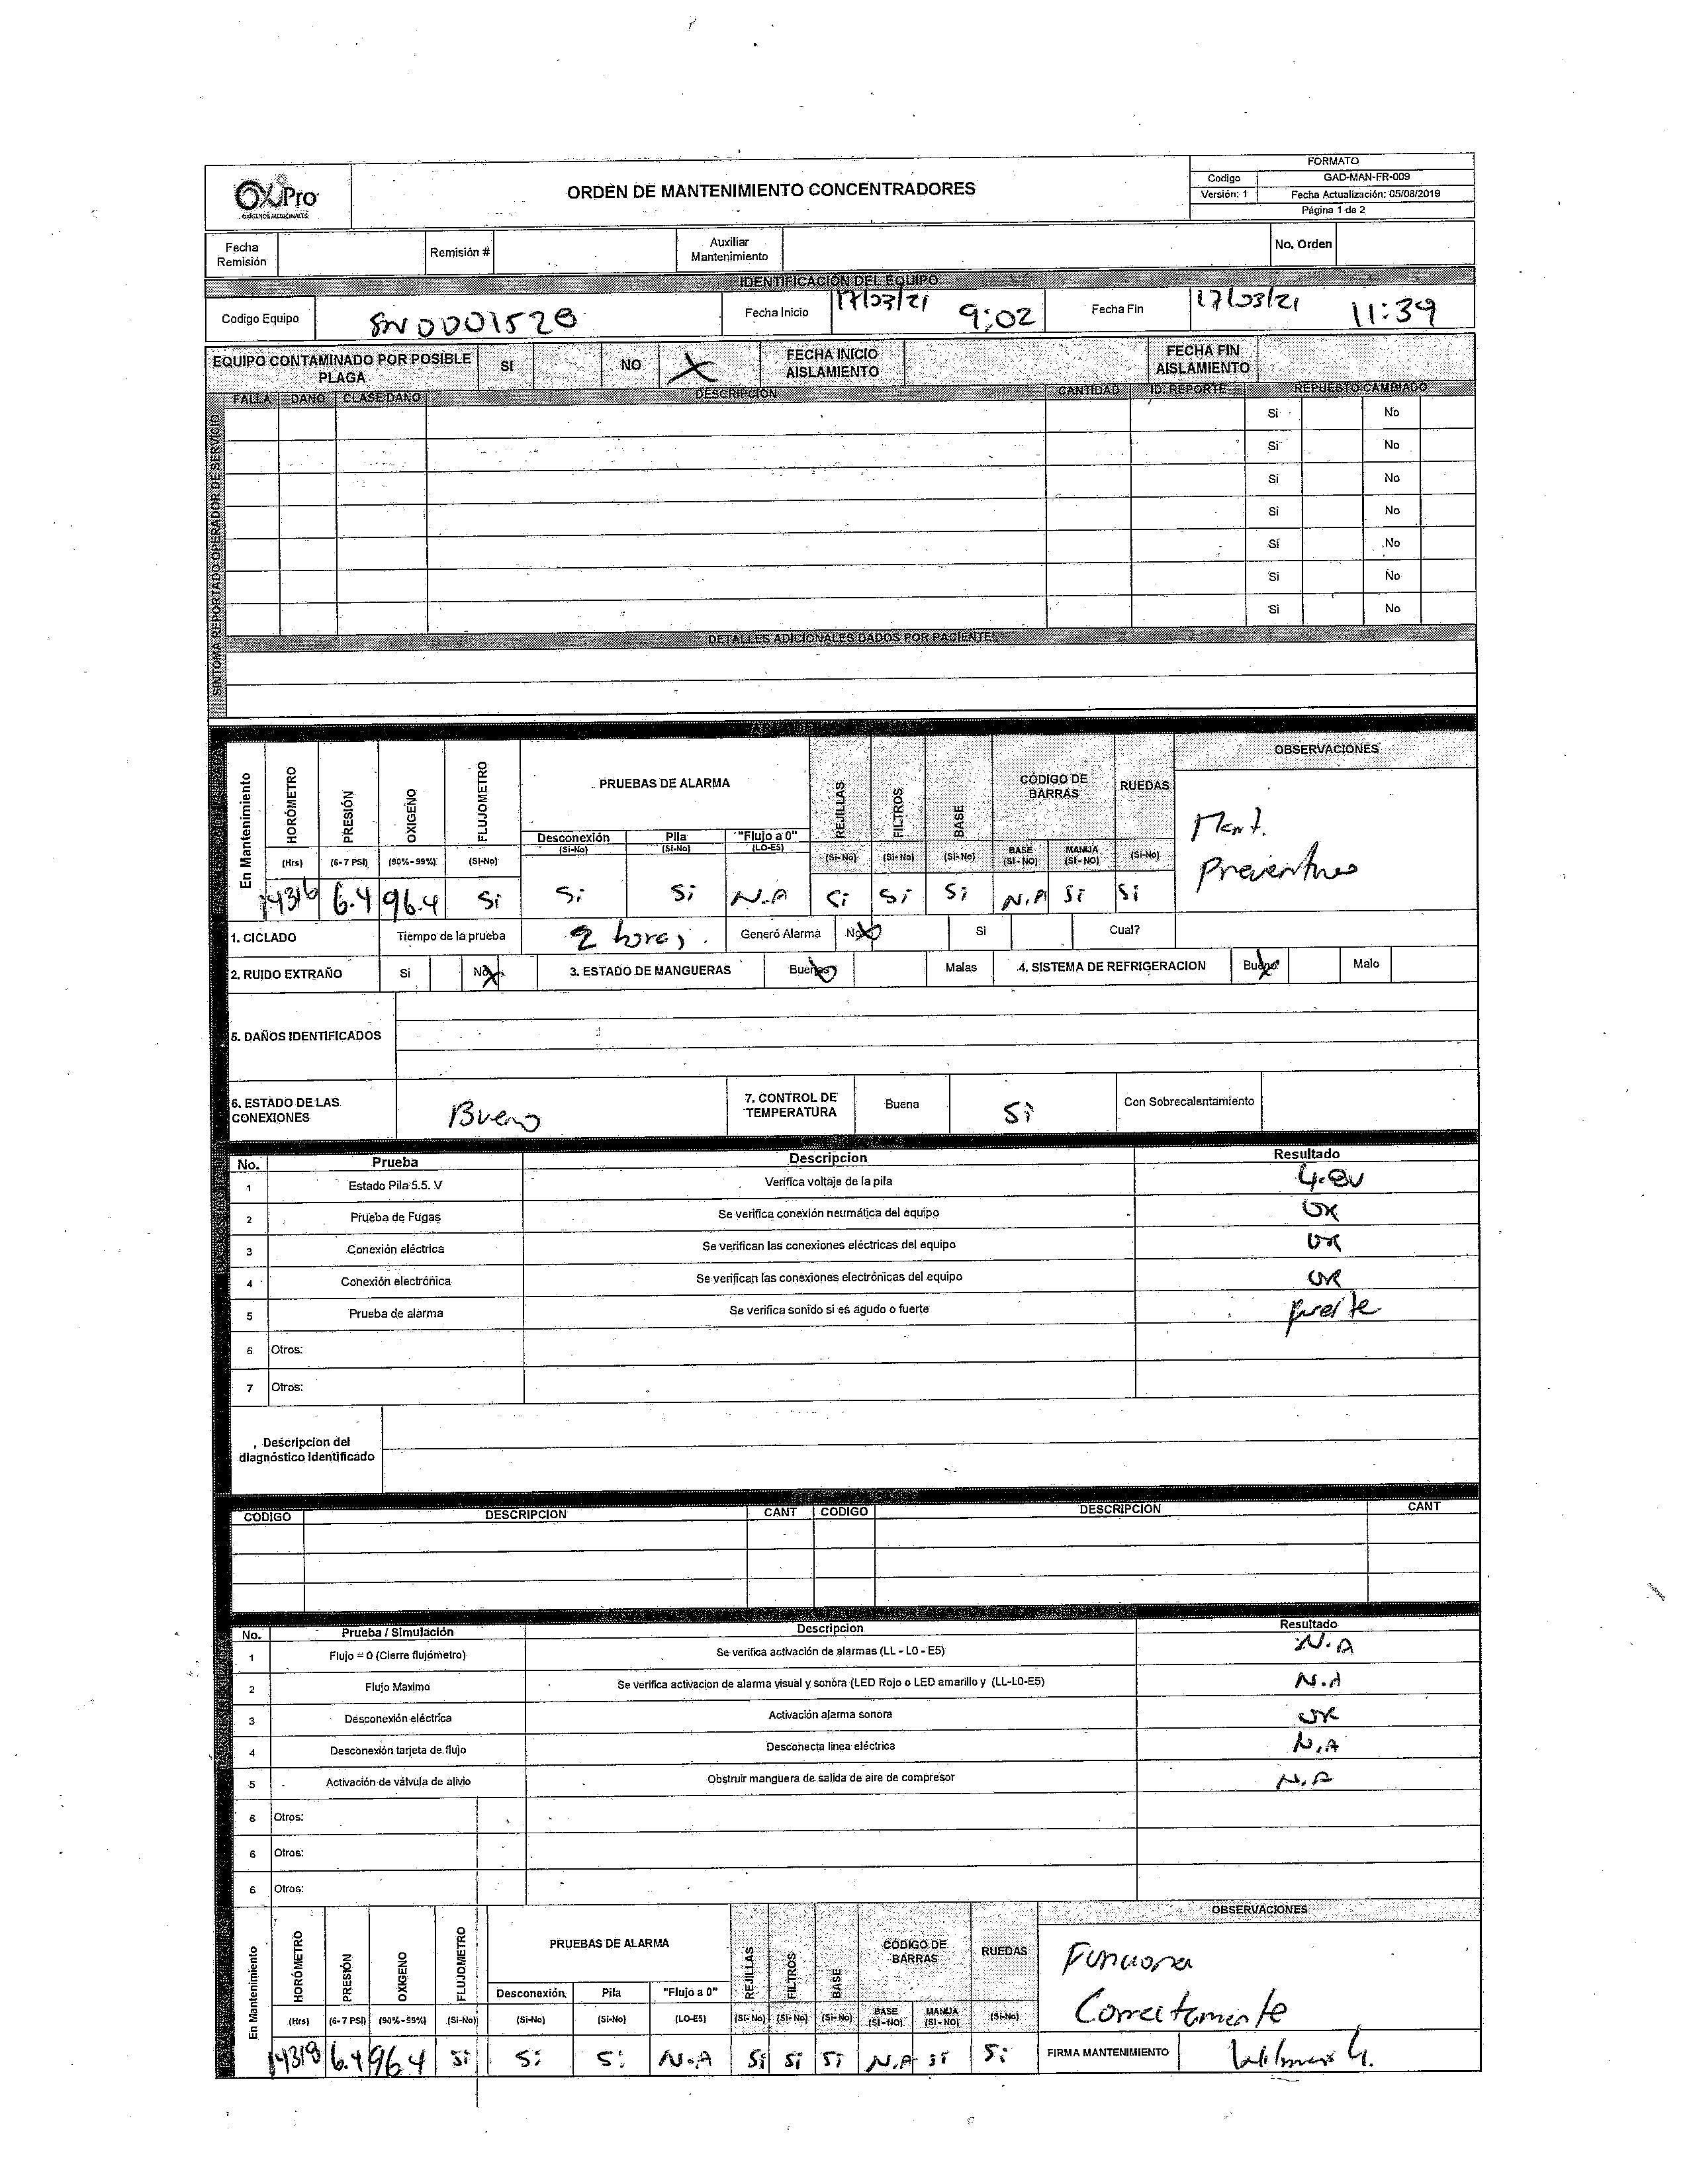 FORMATO
OXiPro
OXÍGENOS MEDICINALES
ORDEN DE MANTENIMIENTO CONCENTRADORES
Codigo GAD-MAN-FR-009
Versión: 1 Fecha Actualización: 05/08/2019
Página 1 de 2
Fecha Remisión Remisión # Auxiliar Mantenimiento No. Orden
IDENTIFICACIÓN DEL EQUIPO
Codigo Equipo SN0001528 Fecha Inicio 17/03/21 9:02 Fecha Fin 17/03/21 11:39
EQUIPO CONTAMINADO POR POSIBLE PLAGA SI NO X FECHA INICIO AISLAMIENTO FECHA FIN AISLAMIENTO
SINTOMA REPORTADO OPERADOR DE SERVICIO
FALLA DAÑO CLASE DAÑO DESCRIPCIÓN CANTIDAD ID. REPORTE REPUESTO CAMBIADO
Si No
Si No
Si No
Si No
Si No
Si No
Si No
DETALLES ADICIONALES DADOS POR PACIENTE
En Mantenimiento HORÓMETRO PRESIÓN OXIGENO FLUJOMETRO PRUEBAS DE ALARMA REJILLAS FILTROS BASE CÓDIGO DE BARRAS RUEDAS OBSERVACIONES
Desconexión Pila "Flujo a 0"
(Hrs) (6-7 PSI) (90%-99%) (Si-No) (Si-No) (Si-No) (LO-E5) (Si-No) (Si-No) (Si-No) BASE (SI-NO) MANIJA (SI-NO) (Si-No)
14316 6.4 96.4 Si Si Si N.A Si Si Si N.A Si Si
Mant.
Preventivo
1. CICLADO Tiempo de la prueba 2 horas. Generó Alarma No X Si Cual?
2. RUIDO EXTRAÑO Si No X 3. ESTADO DE MANGUERAS Buenas X Malas 4. SISTEMA DE REFRIGERACION Bueno X Malo
5. DAÑOS IDENTIFICADOS
6. ESTADO DE LAS CONEXIONES Bueno 7. CONTROL DE TEMPERATURA Buena Si Con Sobrecalentamiento
No. Prueba Descripcion Resultado
1 Estado Pila 5.5. V Verifica voltaje de la pila 4.8v
2 Prueba de Fugas Se verifica conexión neumática del equipo OK
3 Conexión eléctrica Se verifican las conexiones eléctricas del equipo OK
4 Conexión electrónica Se verifican las conexiones electrónicas del equipo OK
5 Prueba de alarma Se verifica sonido si es agudo o fuerte fuerte
6 Otros:
7 Otros:
Descripcion del diagnóstico identificado
CODIGO DESCRIPCION CANT CODIGO DESCRIPCION CANT
No. Prueba / Simulación Descripcion Resultado
1 Flujo = 0 (Cierre flujómetro) Se verifica activación de alarmas (LL - L0 - E5) N.A
2 Flujo Maximo Se verifica activacion de alarma visual y sonora (LED Rojo o LED amarillo y (LL-L0-E5) N.A
3 Desconexión eléctrica Activación alarma sonora OK
4 Desconexión tarjeta de flujo Desconecta linea eléctrica N.A
5 Activación de válvula de alivio Obstruir manguera de salida de aire de compresor N.A
6 Otros:
6 Otros:
6 Otros:
En Mantenimiento HORÓMETRO PRESIÓN OXIGENO FLUJOMETRO PRUEBAS DE ALARMA REJILLAS FILTROS BASE CÓDIGO DE BARRAS RUEDAS OBSERVACIONES
Desconexión Pila "Flujo a 0"
(Hrs) (6-7 PSI) (90%-99%) (Si-No) (Si-No) (Si-No) (LO-E5) (Si-No) (Si-No) (Si-No) BASE (SI-NO) MANIJA (SI-NO) (Si-No)
Funciona
Correctamente
14318 6.4 96.4 Si Si Si N.A Si Si Si N.A Si Si
FIRMA MANTENIMIENTO